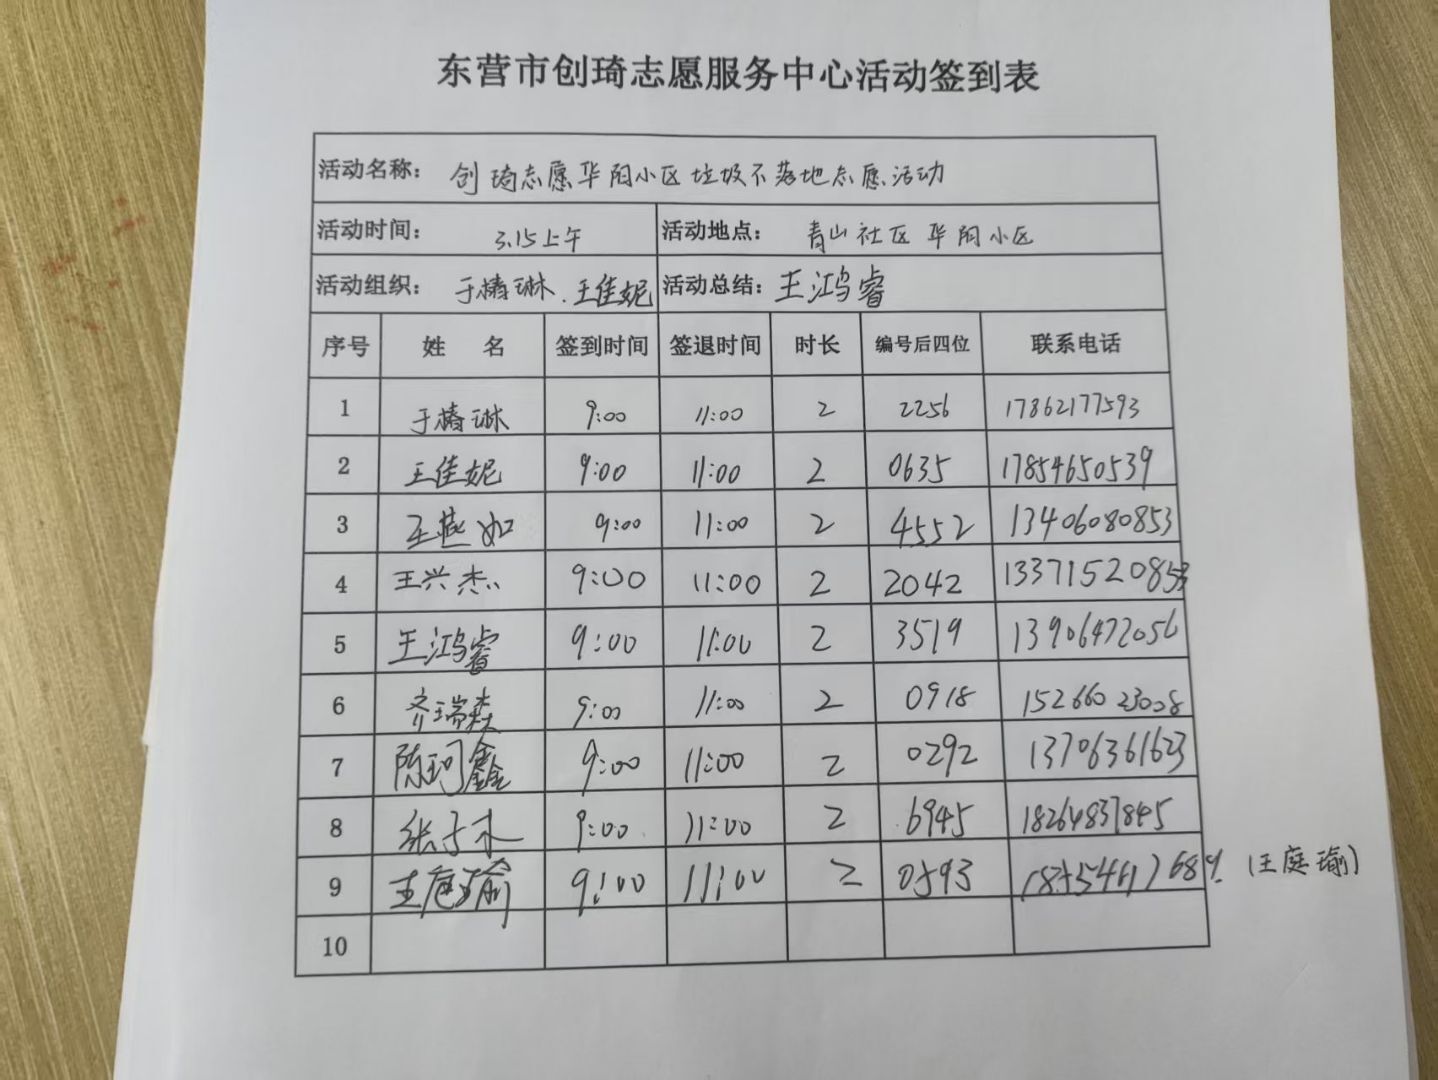 东营市创琦志愿服务中心活动签到表
活动名称： 创琦志愿华阳小区垃圾不落地志愿活动
活动时间： 3.15上午 活动地点： 青山社区 华阳小区
活动组织： 于椿琳、王佳妮 活动总结： 王鸿睿
序号 姓 名 签到时间 签退时间 时长 编号后四位 联系电话
1 于椿琳 9:00 11:00 2 2256 17862177593
2 王佳妮 9:00 11:00 2 0635 17854650539
3 王燕如 9:00 11:00 2 4552 13406080853
4 王兴杰 9:00 11:00 2 2042 13371520853
5 王鸿睿 9:00 11:00 2 3519 13906472056
6 齐瑞森 9:00 11:00 2 0918 15266023008
7 陈珂鑫 9:00 11:00 2 0292 13706361623
8 张子木 9:00 11:00 2 6945 18264837845
9 王庭瑜 9:00 11:00 2 0593 (王庭瑜)
10